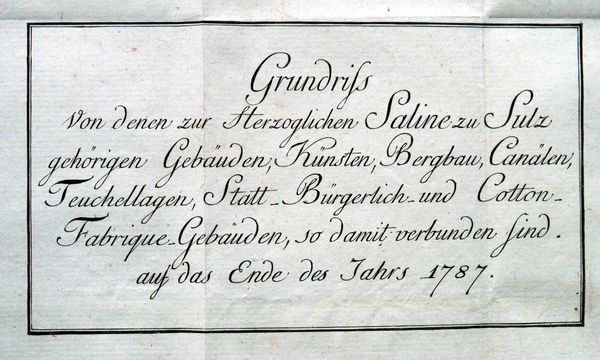 Grundriſs
Von denen zur Herzoglichen Saline zu Sulz
gehörigen Gebäuden, Künsten, Bergbau, Canälen,
Teuchellagen, Statt-Bürgerlich-und Cotton-
Fabrique-Gebäuden, so damit verbunden sind.
auf das Ende des Jahrs 1787.